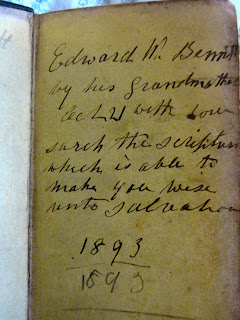 Edward W. Bennett
by his grandmother
with love
sarch the scripture
which is able to
make you wise
unto salvation
1893
1893